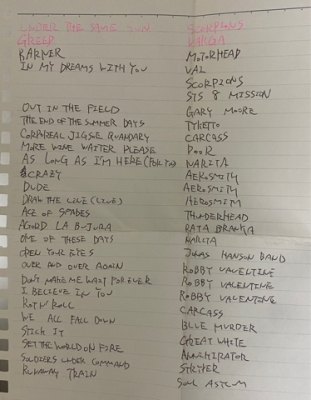 UNDER THE SAME SUN SCORPIONS
GREED VARGA
KARNER MOTORHEAD
IN MY DREAMS WITH YOU VAI
SCORPIONS
STS 8 MISSION
OUT IN THE FIELD GARY MOORE
THE END OF THE SUMMER DAYS TYKETTO
CORPOREAL JIGSOE QUANDARY CARCASS
MORE WINE WAITER PLEASE POOR
AS LONG AS I'M HERE NARITA
CRAZY AEROSMITH
DUDE AEROSMITH
DRAW THE LINE (LIVE) AEROSMITH
ACE OF SPADES THUNDERHEAD
AGORD LA BUJURA RATA BRANKA
ONE OF THESE DAYS NARITA
OPEN YOUR EYES JONAS HANSON BAND
OVER AND OVER AGAIN ROBBY VALENTINE
DON'T MAKE ME WAIT FOREVER ROBBY VALENTINE
I BELIEVE IN YOU ROBBY VALENTINE
ROT N' ROLL CARCASS
WE ALL FALL DOWN BLUE MURDER
STICK IT GREAT WHITE
SET THE WORLD ON FIRE ANNIHILATOR
SOLDIERS UNDER COMMAND STRYPER
RUNAWAY TRAIN SOUL ASYLUM